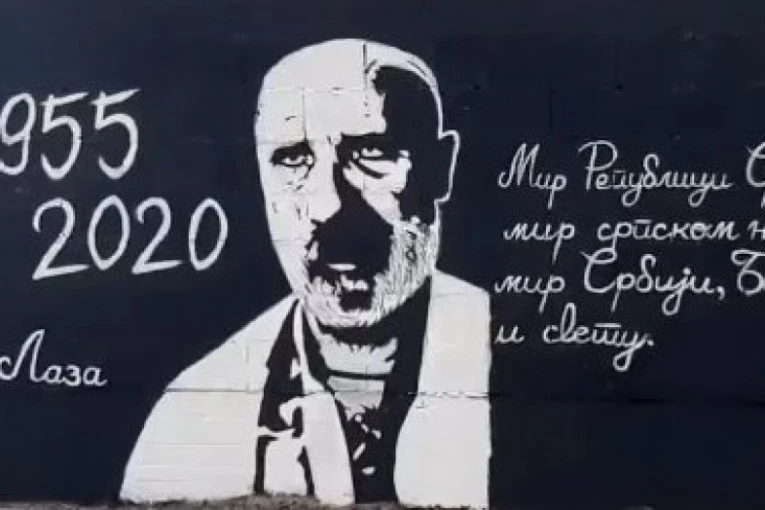 955
2020
Лаза
Мир Републици
мир српском
мир Србији,
и свету.